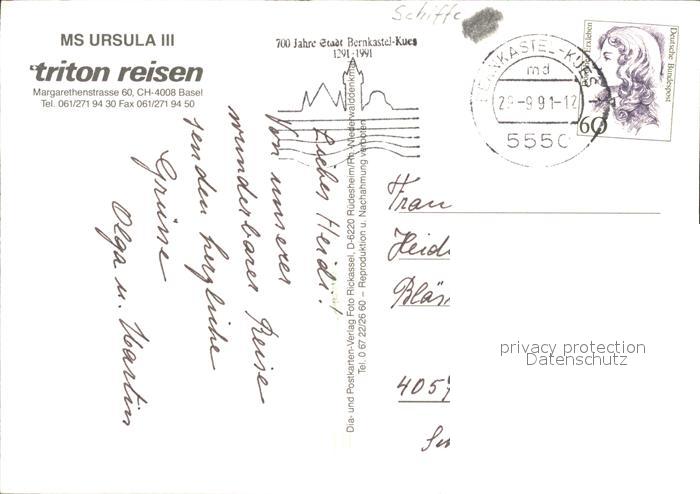 Schiffe
MS URSULA III
triton reisen
Margarethenstrasse 60, CH-4008 Basel
Tel. 061/271 94 30 Fax 061/271 94 50
700 Jahre Stadt Bernkastel-Kues
1291-1991
BERNKASTEL-KUES
md
-9.91-12
5550
Deutsche Bundespost
60
Liebes Heidi!
Von unserer
wunderbaren Reise
senden herzliche
Grüsse
Olga u. Martin
Dia- und Postkarten-Verlag Foto Rickassel, D-6220 Rüdesheim/Rh. Niederwalddenkmal
Tel. 0 67 22/26 60 – Reproduktion u. Nachahmung verboten
Frau
Heidi
Bläs
4057
privacy protection
Datenschutz